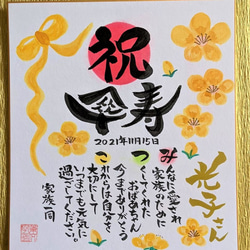 祝
傘寿
2021年11月15日
みんなに愛され
家族のために
つくしてくれた
おばあちゃん
今までありがとう
これからは自分を
大切にして
いつまでも元気に
過ごしてください。
家族一同
光子さん